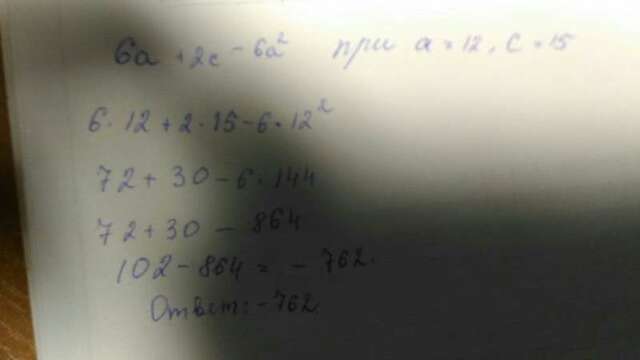 6a + 2c - 6a² при a = 12, c = 15
6 · 12 + 2 · 15 - 6 · 12²
72 + 30 - 6 · 144
72 + 30 - 864
102 - 864 = - 762.
Ответ: - 762.